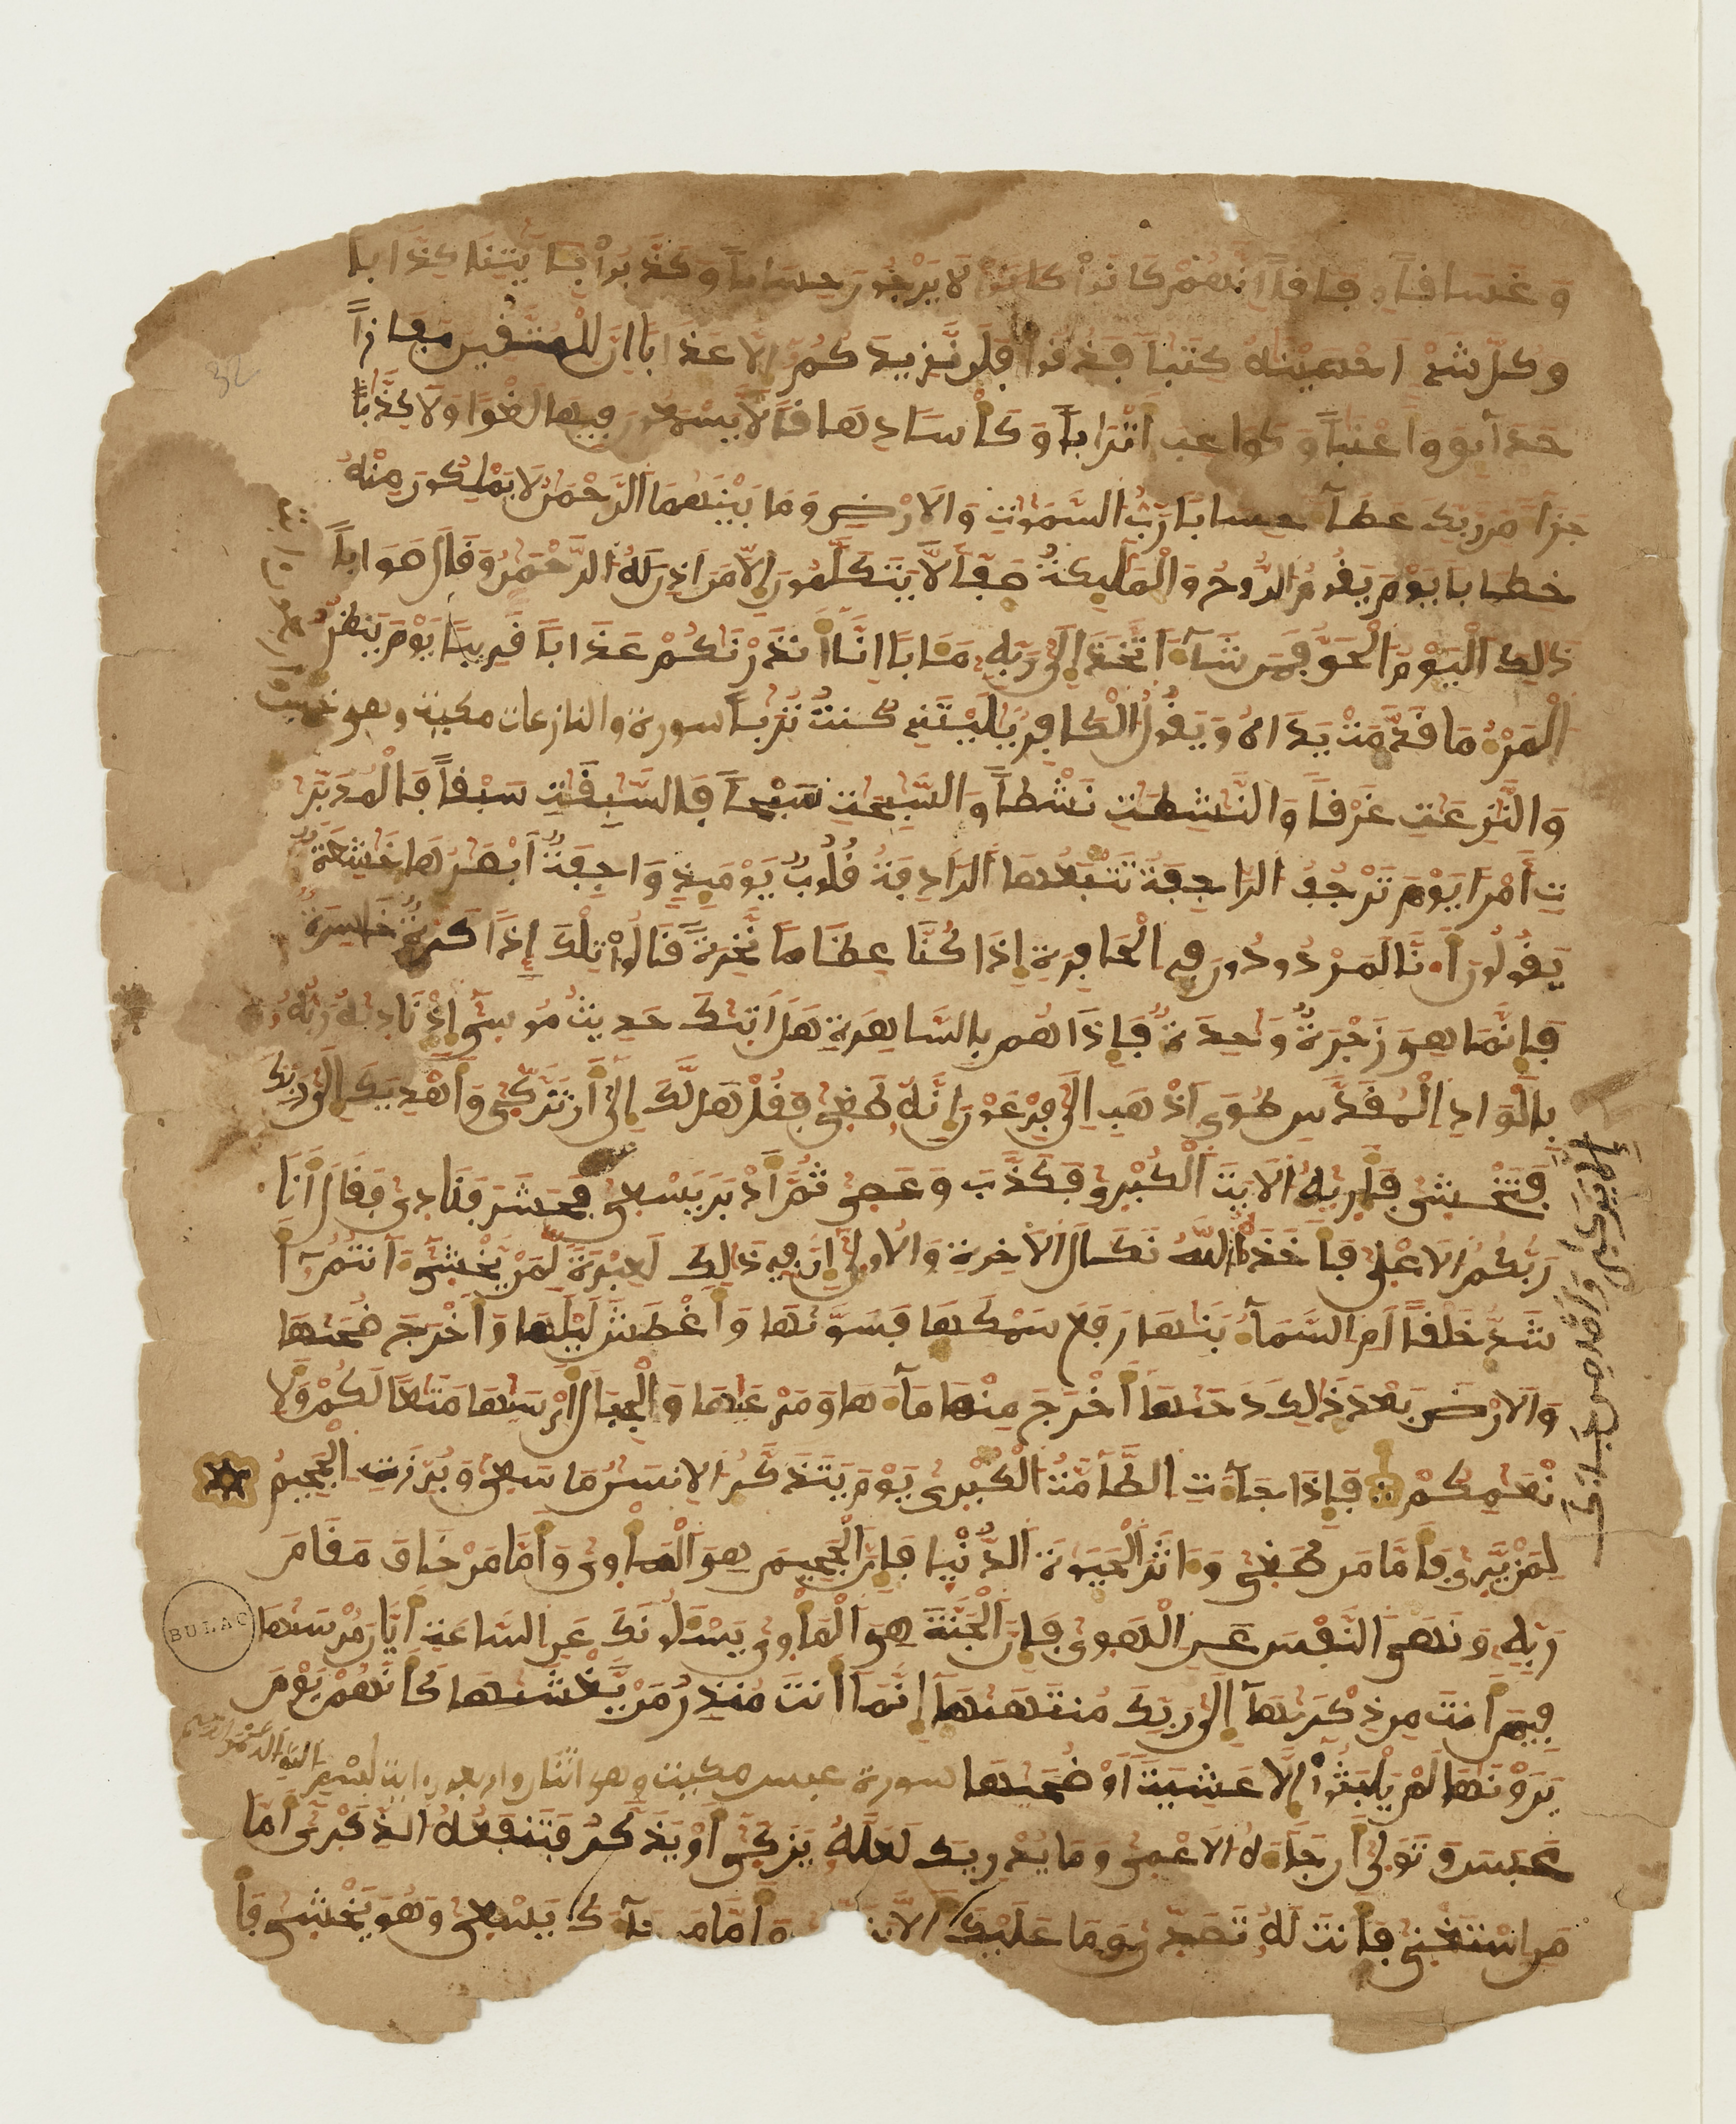 وَغَسَافاً وِفَافاً اِنَّهُمْ كَانُواْ كانُواْ لَا يَرْجُونَ حِسَاباً وَكَذَّبُواْ بِـَٔايَٰتِنَا كِذَّاباً
وَكُلَّ شَےْءٍ اَحْصَيْنَٰهُ كِتَٰباً فَذُوقُواْ فَلَن نَّزِيدَكُمُ إِلَّا عَذَاباً اِنَّ لِلْمُتَّقِينَ مَفَازاً
حَدَآئِقَ وَأَعْنَٰباً وَكَوَاعِبَ أَتْرَاباً وَكَأْساً دِهَافاً لَّا يَسْمَعُونَ فِيهَا لَغْواً وَلَا كِذَّٰباً
جَزَآءً مِّن رَّبِّكَ عَطَآءً حِسَاباً رَبُّ السَّمَٰوَٰتِ وَالَارْضِ وَمَا بَيْنَهُمَا الرَّحْمَٰنُ لَا يَمْلِكُونَ مِنْهُ
خِطَاباً يَوْمَ يَقُومُ الرُّوحُ وَالْمَلَٰٓئِكَةُ صَفّاً لَّا يَتَكَلَّمُونَ إِلَّا مَنَ اَذِنَ لَهُ الرَّحْمَٰنُ وَقَالَ صَوَاباً
ذَٰلِكَ الْيَوْمُ الْحَقُّ فَمَن شَآءَ اَتَّخَذَ إِلَىٰ رَبِّهِۦ مَـَٔاباً اِنَّآ أَنذَرْنَٰكُمْ عَذَاباً قَرِيباً يَوْمَ يَنظُرُ
الْمَرْءُ مَا قَدَّمَتْ يَدَاهُ وَيَقُولُ الْكَافِرُ يَٰلَيْتَنِے كُنتُ تُرَٰباً سورة والنازعات مكية وهي خمس
وَالنَّٰزِعَٰتِ غَرْقاً وَالنَّٰشِطَٰتِ نَشْطاً وَالسَّٰبِحَٰتِ سَبْحاً فَالسَّٰبِقَٰتِ سَبْقاً فَالْمُدَبِّرَٰ
تِ أَمْراً يَوْمَ تَرْجُفُ الرَّاجِفَةُ تَتْبَعُهَا الرَّادِفَةُ قُلُوبٌ يَوْمَئِذٍ وَاجِفَةٌ أَبْصَٰرُهَا خَٰشِعَةٌ
يَقُولُونَ أَ.نَّا لَمَرْدُودُونَ فِے الْحَافِرَةِ إِذَا كُنَّا عِظَٰماً نَّخِرَةً قَالُواْ تِلْكَ إِذاً كَرَّةٌ خَاسِرَةٌ
فَإِنَّمَا هِىَ زَجْرَةٌ وَٰحِدَةٌ فَإِذَا هُم بِالسَّاهِرَةِ هَلَ اَتَىٰكَ حَدِيثُ مُوسَىٰٓ إِذْ نَادَىٰهُ رَبُّهُۥ
بِالْوَادِ الْمُقَدَّسِ طُوَى اَذْهَبِ اِلَىٰ فِرْعَوْنَ إِنَّهُۥ طَغَىٰ فَقُلْ هَل لَّكَ إِلَىٰٓ أَن تَزَّكَّىٰ وَأَهْدِيَكَ إِلَىٰ رَبِّكَ
فَتَخْشَىٰ فَأَرَىٰهُ الَايَةَ الْكُبْرَىٰ فَكَذَّبَ وَعَصَىٰ ثُمَّ أَدْبَرَ يَسْعَىٰ فَحَشَرَ فَنَادَىٰ فَقَالَ أَنَا
رَبُّكُمُ الَاعْلَىٰ فَأَخَذَهُ اللَّهُ نَكَالَ الَاخِرَةِ وَالُاولَىٰٓ إِنَّ فِے ذَٰلِكَ لَعِبْرَةً لِّمَنْ يَّخْشَىٰٓ ءَآنتُمُۥٓ أَ
شَدُّ خَلْقاً اَمِ السَّمَآءُ بَنَىٰهَا رَفَعَ سَمْكَهَا فَسَوَّىٰهَا وَأَغْطَشَ لَيْلَهَا وَأَخْرَجَ ضُحَىٰهَا
وَالَارْضَ بَعْدَ ذَٰلِكَ دَحَىٰهَآ أَخْرَجَ مِنْهَا مَآءَهَا وَمَرْعَىٰهَا وَالْجِبَالَ أَرْسَىٰهَا مَتَٰعاً لَّكُمْ وَلَا
نْعَٰمِكُمْ فَإِذَا جَآءَتِ الطَّآمَّةُ الْكُبْرَىٰ يَوْمَ يَتَذَكَّرُ الِانسَٰنُ مَا سَعَىٰ وَبُرِّزَتِ الْجَحِيمُ
لِمَنْ يَّرَىٰ فَأَمَّا مَن طَغَىٰ وَءَاثَرَ الْحَيَوٰةَ الدُّنْيَا فَإِنَّ الْجَحِيمَ هِىَ الْمَأْوَىٰ وَأَمَّا مَنْ خَافَ مَقَامَ
رَبِّهِۦ وَنَهَى النَّفْسَ عَنِ الْهَوَىٰ فَإِنَّ الْجَنَّةَ هِىَ الْمَأْوَىٰ يَسْـَٔلُونَكَ عَنِ السَّاعَةِ أَيَّانَ مُرْسَىٰهَا
فِيمَ أَنتَ مِن ذِكْرَىٰهَآ إِلَىٰ رَبِّكَ مُنتَهَىٰهَآ إِنَّمَآ أَنتَ مُنذِرُ مَنْ يَّخْشَىٰهَا كَأَنَّهُمْ يَوْمَ
يَرَوْنَهَا لَمْ يَلْبَثُوٓاْ إِلَّا عَشِيَّةً أَوْ ضُحَىٰهَا سورة عبس مكية وهي اثنان واربعون اية بسم الله الرحمن الرحيم
عَبَسَ وَتَوَلَّىٰٓ أَن جَآءَهُ الَاعْمَىٰ وَمَا يُدْرِيكَ لَعَلَّهُۥ يَزَّكَّىٰٓ أَوْ يَذَّكَّرُ فَتَنفَعُهُ الذِّكْرَىٰٓ أَمَّا
مَنِ اسْتَغْنَىٰ فَأَنتَ لَهُۥ تَصَّدَّىٰ وَمَا عَلَيْكَ أَلَّا وَأَمَّا مَن جَآءَكَ يَسْعَىٰ وَهُوَ يَخْشَىٰ فَأَ
32
BULAC